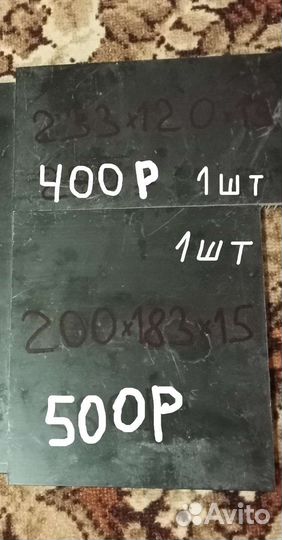 400Р 1шт
1шт
200×183×15
500Р
Avito